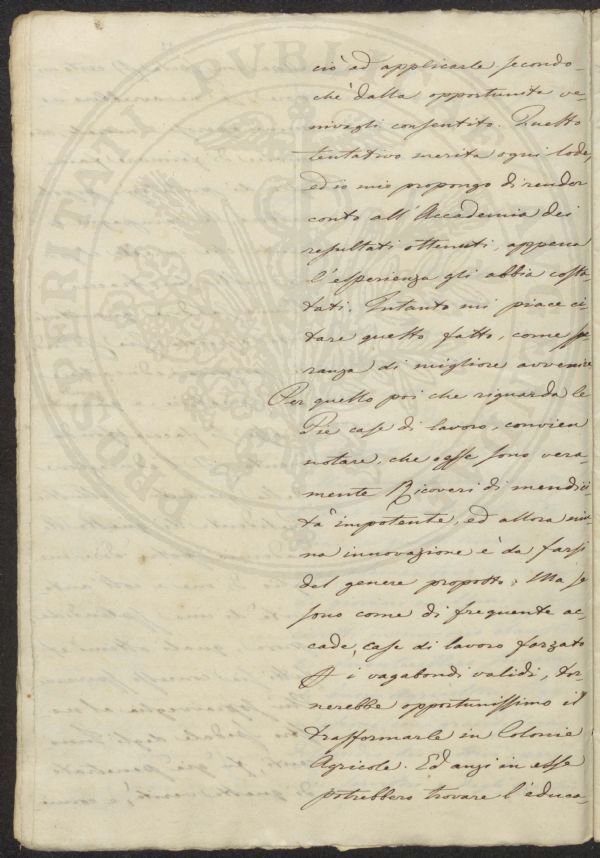 ciò ad applicarle, secondo-
chè dalla opportunità ve-
nivagli consentito. Questo
tentativo merita ogni lode,
ed io mio propongo di render
conto all'Accademia dei
resultati ottenuti, appena
l'esperienza gli abbia costa-
tati. Intanto mi piace ci-
tare questo fatto, come spe
ranza di migliore avvenire
Per quello poi che riguarda le
Pie case di lavoro, convien
notare, che o esse sono vera-
mente Ricoveri di mendici-
tà impotente, ed allora niu-
na innovazione è da farsi
del genere proposto; Ma se
sono come di frequente ac-
cade, case di lavoro forzato
p i vagabondi validi, tor-
nerebbe opportunissimo il
trasformarle in Colonie
Agricole. Ed anzi in esse
potrebbero trovare l'educa-
PROSPERITATI PVBLI